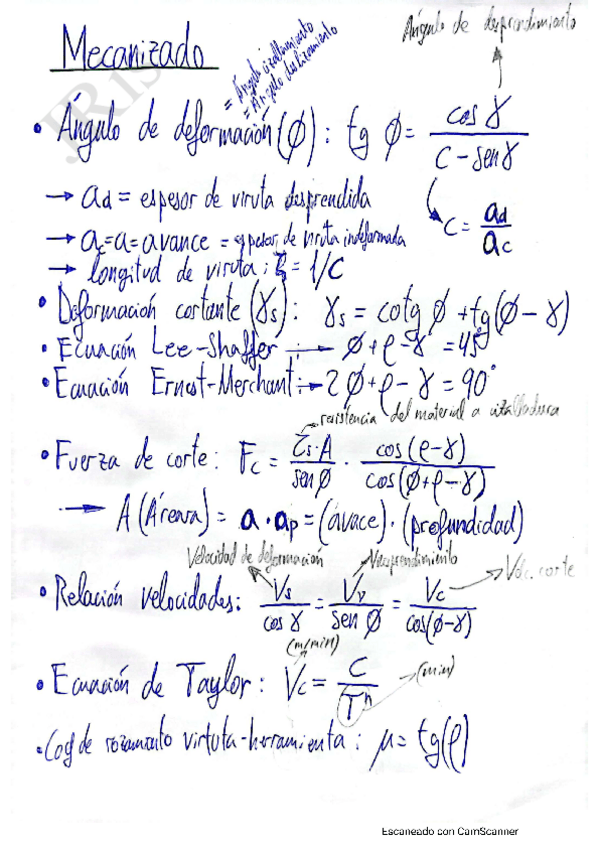 Ángulo de desprendimiento
Mecanizado
= Ángulo cizallamiento
= Ángulo deslizamiento
• Ángulo de deformación (ϕ): tg ϕ = cos γ / (C - sen γ)
→ ad = espesor de viruta desprendida
C = ad / ac
→ ac = a = avance = espesor de viruta indeformada
→ longitud de viruta: ξ = 1/C
• Deformación cortante (γs): γs = cotg ϕ + tg(ϕ - γ)
• Ecuación Lee-Shaffer: → ϕ + ρ - γ = 45°
• Ecuación Ernest-Merchant: → 2ϕ + ρ - γ = 90°
→ resistencia del material a cizalladura
• Fuerza de corte: Fc = (τs · A / sen ϕ) · (cos (ρ - γ) / cos (ϕ + ρ - γ))
→ A (Área) = a · ap = (avace) · (profundidad)
Velocidad de deformación
Vdesprendimiento
Veloc. corte
• Relación velocidades: Vs / cos γ = Vv / sen ϕ = Vc / cos(ϕ - γ)
(m/min)
• Ecuación de Taylor: Vc = C / Tⁿ (min)
• Coef de rozamiento virtuta-herramienta: μ = tg(ρ)
Escaneado con CamScanner